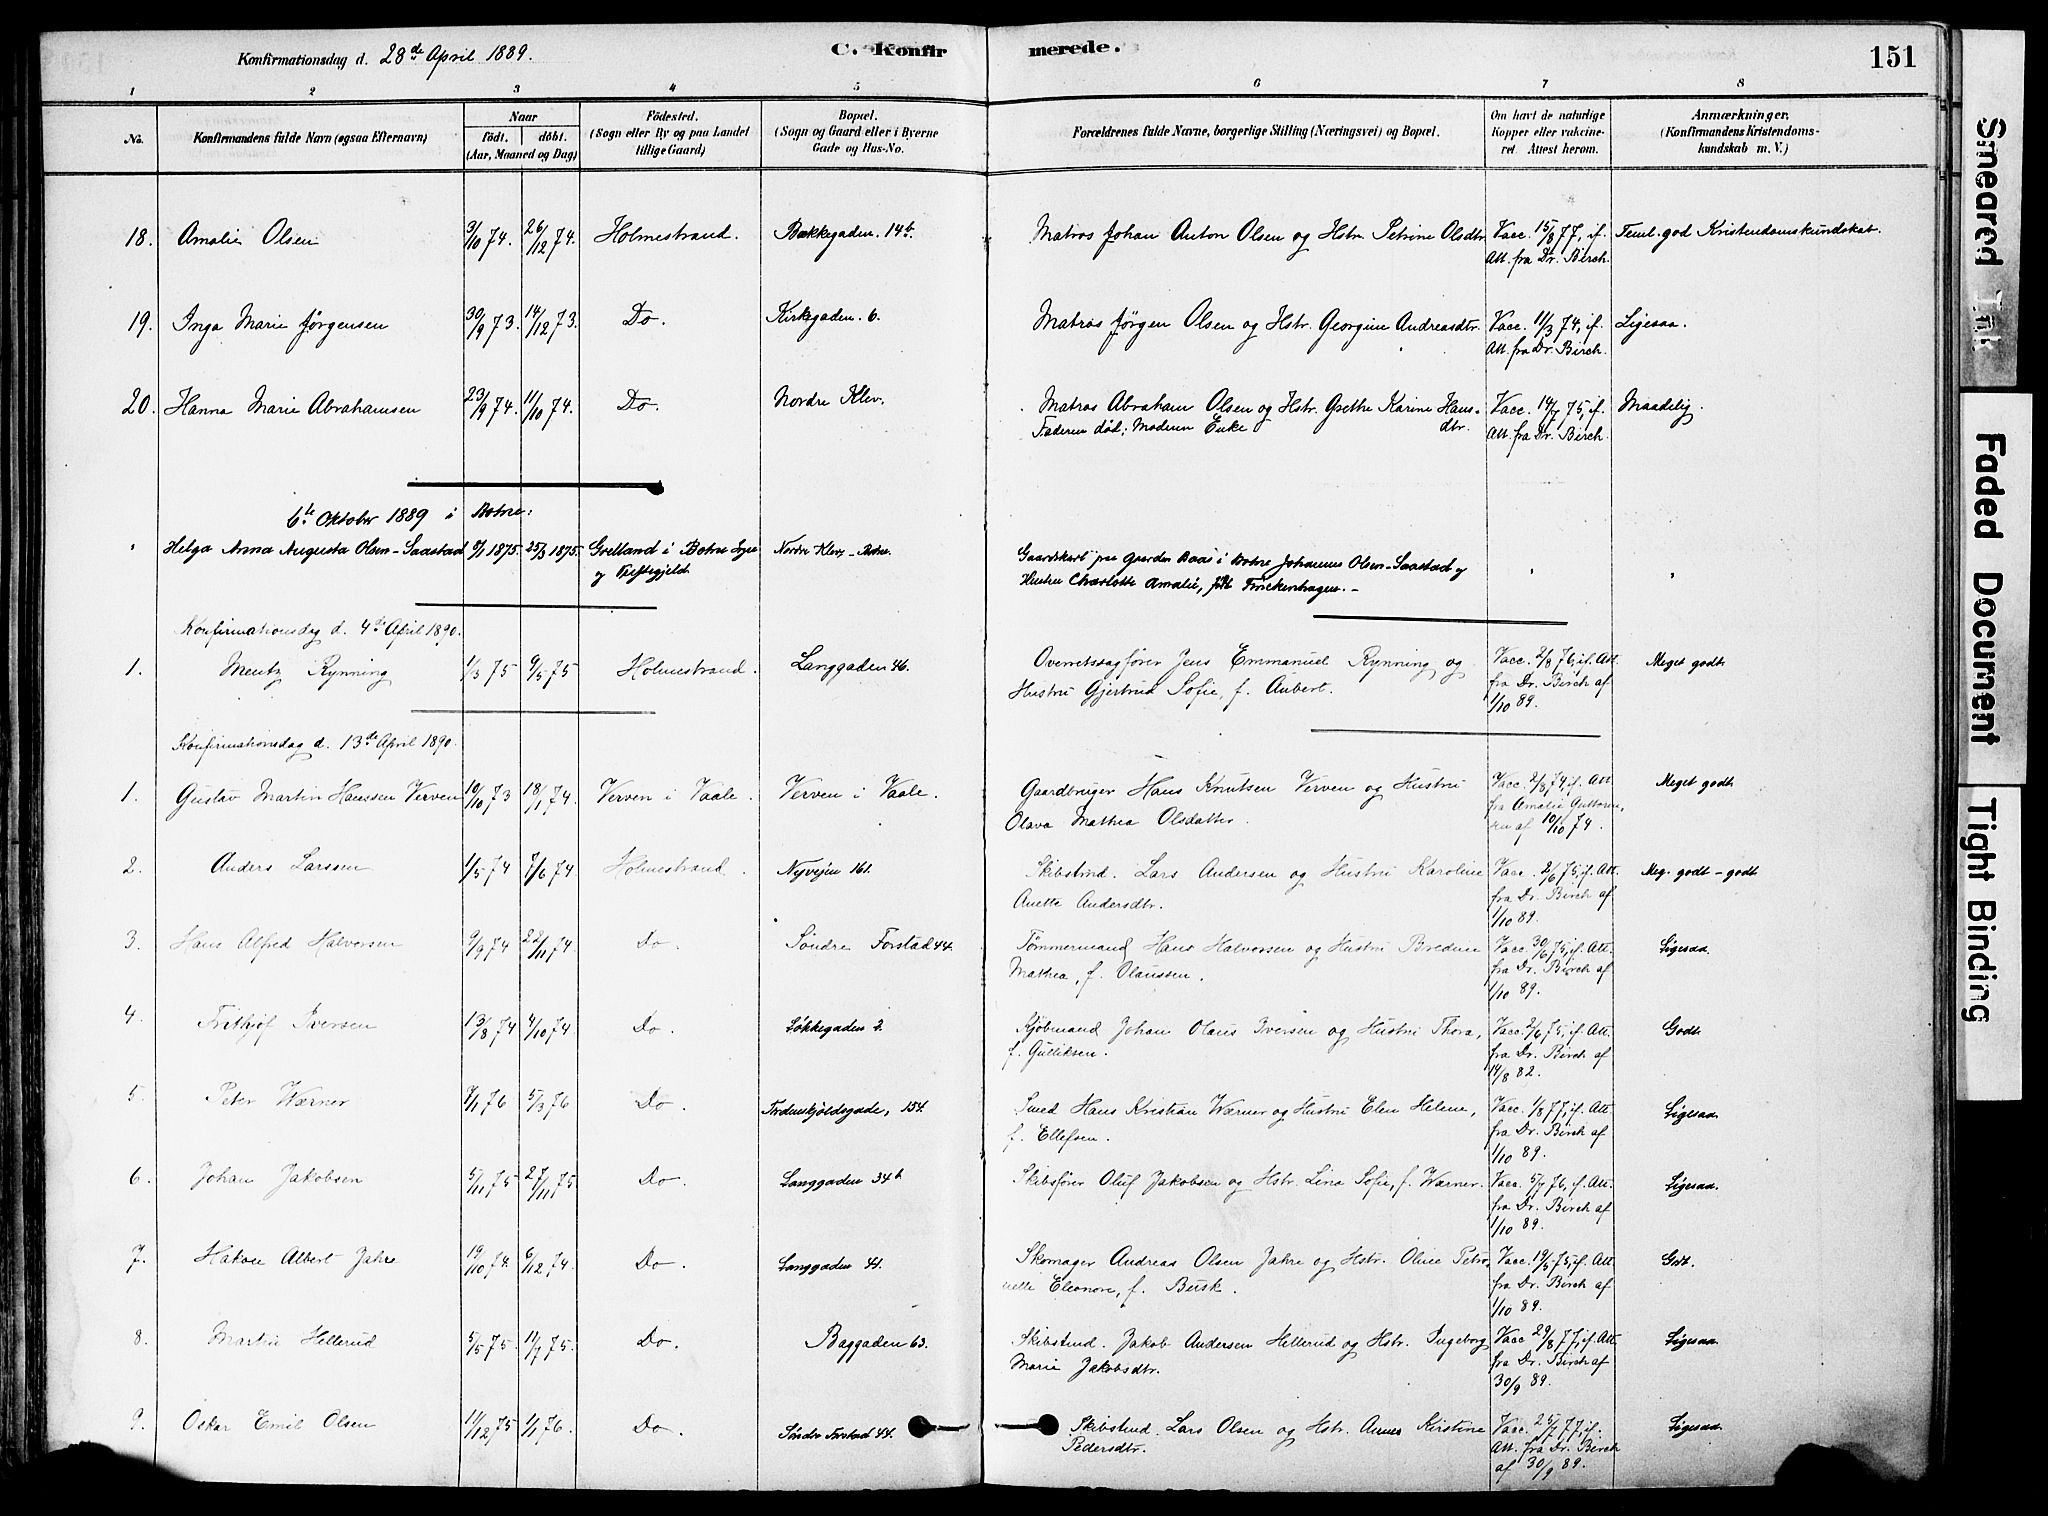 Konfirmationsdag d. 28de April 1889.
C. Konfir merede.
151
1 2 3 4 5 6 7 8
No.
Konfirmandens fulde Navn (ogsaa Efternavn)
Naar
födt. döbt.
(Aar, Maaned og Dag)
Födested.
(Sogn eller By og paa Landet
tillige Gaard)
Bopæl.
(Sogn og Gaard eller i Byerne
Gade og Hus-No.
Forældrenes fulde Navne, borgerlige Stilling (Næringsvei) og Bopæl.
Om havt de naturlige
Kopper eller vakcine-
ret. Attest herom.
Anmærkninger.
(Konfirmandens Kristendoms-
kundskab m. V.)
18. Amalie Olsen 3/10 74. 26/12 74. Holmestrand. Bakkegaden. 14b. Matros Johan Anton Olsen og Hstr. Petrine Olsdtr. Vacc. 15/8 77, if. Teml. god Kristendomskundskab.
Att. fra Dr. Birch.
19. Inga Marie Jørgensen 30/9 73. 14/12 73. Do. Kirkegaden. 6. Matros Jørgen Olsen og Hstr. Georgine Andreasdtr. Vacc. 11/3 74, if. Ligesaa.
Att. fra Dr. Birch.
20. Hanna Marie Abrahamsen 23/9 74. 11/10 74. Do. Nordre Klev. Matros Abraham Olsen og Hstr. Grethe Karine Hans- Vacc. 14/7 75, if. Maadelig.
Faderen død; Moderen Enke dtr. Att. fra Dr. Birch.
6te Oktober 1889 i Botne:
" Helga Anna Augusta Olsen-Saastad 8/1 1875. 25/3 1875. Grelland i Botne Sogn Nordre Klev - Botne. Gaardskarl paa Gaarden Baas i Botne Johannes Olsen-Saastad og " "
og Præstegjeld. Hustru Charlotte Amalie, født Frickenhagen. -
Konfirmationsdag d. 4de April 1890.
1. Mentz Rynning 1/3 75 9/5 75 Holmestrand. Langgaden 46. Overretssagfører Jens Emmanuel Rynning og Vacc. 2/8 76, if. Att. Meget godt.
Hustru Gjertrud Sofie, f. Aubert. fra Dr. Birch af
1/10 89.
Konfirmationsdag d. 13de April 1890.
1. Gustav Martin Hanssen Verven 10/10 73 18/1 74. Verven i Vaale. Verven i Vaale. Gaardbruger Hans Knutsen Verven og Hustru Vacc. 2/8 74, if. Att. Meget godt.
Olava Mathea Olsdatter. fra Amalie
af 10/10 74.
2. Anders Larssen 1/5 74 7/6 74. Holmestrand. Nyvejen 161. Skibstmd. Lars Andersen og Hustru Karoline Vacc. 2/6 75, if. Att. Meg. godt - godt
Anette Andersdtr. fra Dr. Birch af
1/10 89.
3. Hans Alfred Halvorsen 9/9 74 22/11 74. Do. Søndre Forstad 44. Tømmermand Hans Halvorsen og Hustru Bredine Vacc. 30/6 75, if. Att. Ligesaa.
Mathea, f. Olaussen. fra Dr. Birch af
1/10 89.
4. Frithjof Iversen 13/8 74 4/10 74. Do. Løkkegaden 2. Kjøbmand Johan Olaus Iversen og Hustru Thora, Vacc. 2/6 75, if. Att. Godt.
f. Gulliksen. fra Dr. Birch af
14/8 82.
5. Peter Wærner 7/1 76 5/3 76 Do. Tordenskjoldsgade, 154. Smed Hans Kristian Wærner og Hustru Elen Helene, Vacc. 1/8 77, if. Att. Ligesaa.
f. Ellefsen. fra Dr. Birch af
1/10 89.
6. Johan Jakobsen 5/11 75 27/11 75 Do. Langgaden 34b Skibsfører Oluf Jakobsen og Hstr. Lina Sofie, f. Wærner. Vacc. 5/7 76, if. Att. Ligesaa.
fra Dr. Birch af
1/10 89.
7. Hakon Albert Jahre 19/10 74 6/12 74. Do. Langgaden 41. Skomager Andreas Olsen Jahre og Hstr. Oline Petro- Vacc. 19/5 75, if. Att. Godt.
nelle Eleonore, f. Busk. fra Dr. Birch af
1/10 89.
8. Martin Hellerud 5/5 75. 11/7 75. Do. Baggaden 63. Skibstmd. Jakob Andersen Hellerud og Hstr. Ingeborg Vacc. 29/8 77, if. Att. Ligesaa.
Marie Jakobsdtr. fra Dr. Birch af
30/9 89.
9. Oskar Emil Olsen 11/12 75 1/1 76. Do. Søndre Forstad 44. Skibstmd. Lars Olsen og Hstr. Anne Kirstine Vacc. 25/7 77, if. Ligesaa.
Pedersdtr. Att. fra Dr. Birch
af 30/9 89.
Smeared Ink
Faded Document
Tight Binding